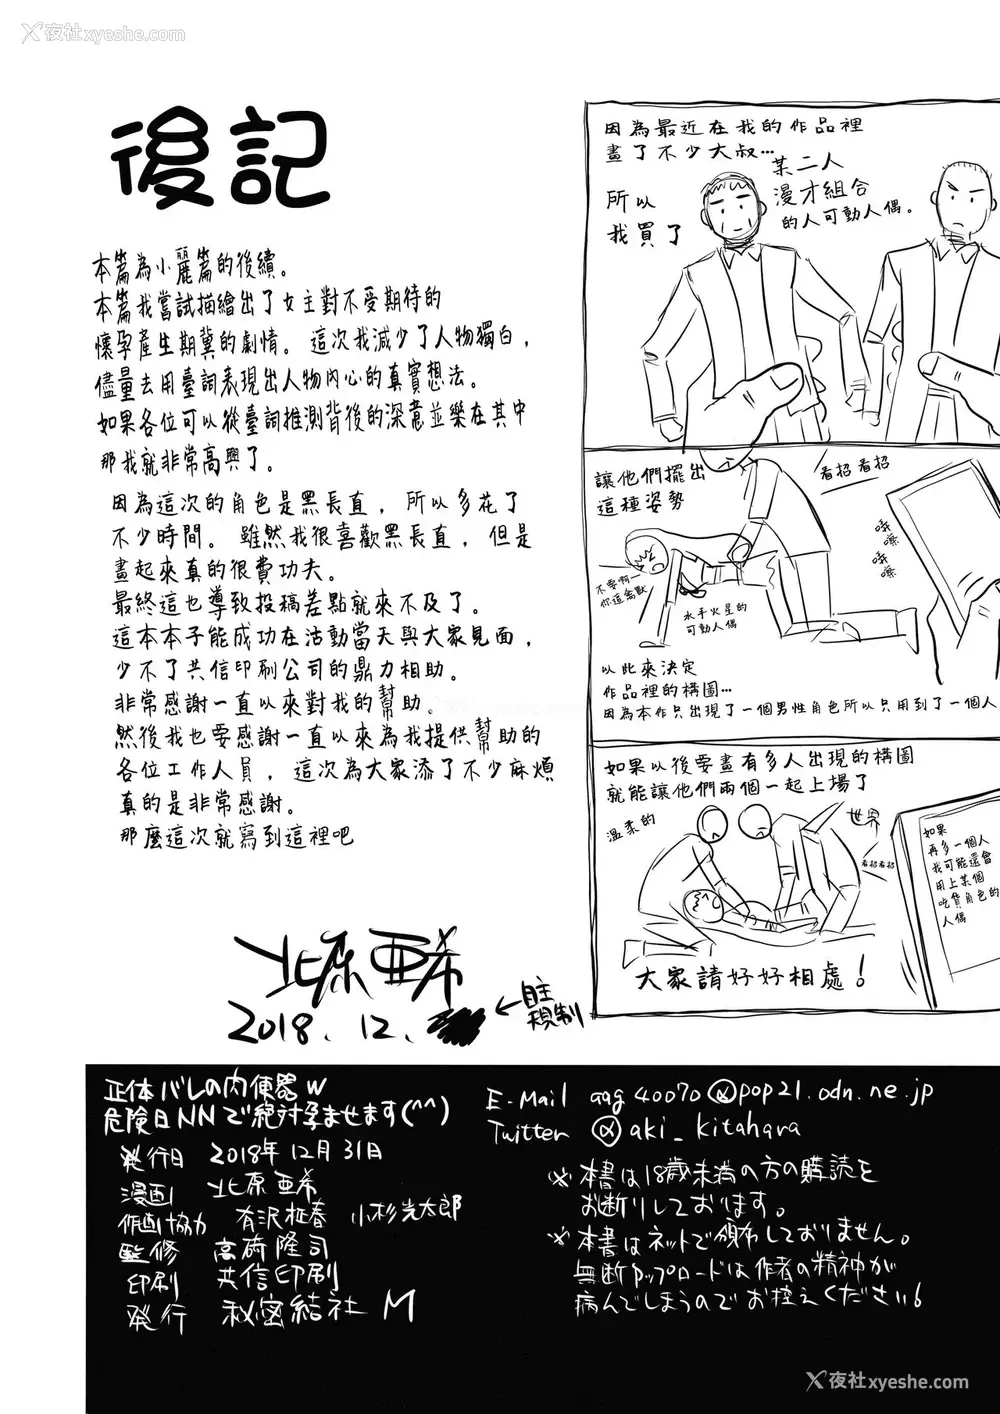 夜社xyeshe.com
後記
本篇為小麗篇的後續。
本篇我嘗試描繪出了女主對不受期待的
懷孕產生期冀的劇情。這次我減少了人物獨白，
儘量去用臺詞表現出人物內心的真實想法。
如果各位可以從臺詞推測背後的深意並樂在其中
那我就非常高興了。
因為這次的角色是黑長直，所以多花了
不少時間。雖然我很喜歡黑長直，但是
畫起來真的很費功夫。
最終這也導致投稿差點就來不及了。
這本本子能成功在活動當天與大家見面，
少不了共信印刷公司的鼎力相助。
非常感謝一直以來對我的幫助。
然後我也要感謝一直以來為我提供幫助的
各位工作人員，這次為大家添了不少麻煩
真的是非常感謝。
那麼這次就寫到這裡吧
北原亜希
2018.12.
←自主
規制
因為最近在我的作品裡
畫了不少大叔…
所以
我買了
某二人
漫才組合
的人可動人偶。
讓他們擺出
這種姿勢
看招看招
咔嚓
咔嚓
不要啊一
你這禽獸
水手火星的
可動人偶
以此來決定
作品裡的構圖…
因為本作只出現了一個男性角色所以只用到了一個人
如果以後要畫有多人出現的構圖
就能讓他們兩個一起上場了
溫柔的
世界
看招看招
如果
再多一個人
我可能還會
用上某個
吃貨角色的
人偶
大家請好好相處！
正体バレの肉便器w
危険日NNで絶対孕ませます(^^)
発行日 2018年12月31日
漫画 北原亜希
作画協力 有沢柾春 小杉光太郎
監修 高荷隆司
印刷 共信印刷
発行 秘密結社M
E-Mail aqg40070@pop21.odn.ne.jp
Twitter @aki_kitahara
※本書は18歳未満の方の購読を
お断りしております。
※本書はネットで頒布しておりません。
無断アップロードは作者の精神が
病んでしまうのでお控えください！
夜社xyeshe.com